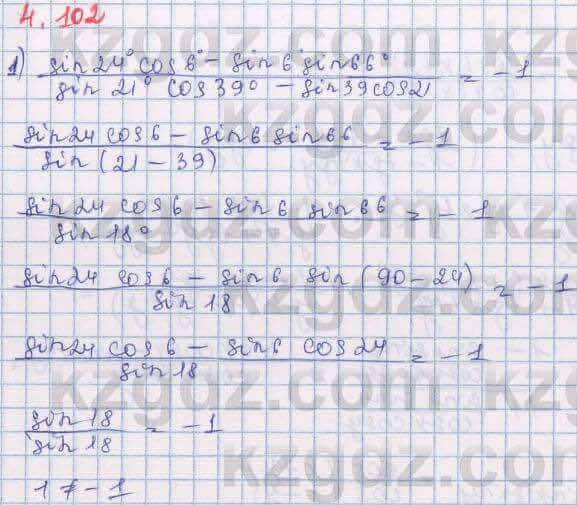 4.102
1) sin24° cos6° - sin6° sin66° / sin21° cos39° - sin39cos21 = -1
sin24 cos6 - sin6 sin66 / sin(21-39) = -1
sin24 cos6 - sin6 sin66 / sin18° = -1
sin24 cos6 - sin6 sin(90-24) / sin18 = -1
sin24 cos6 - sin6 cos24 / sin18 = -1
sin18 / sin18 = -1
1 ≠ -1
kzgdz.com